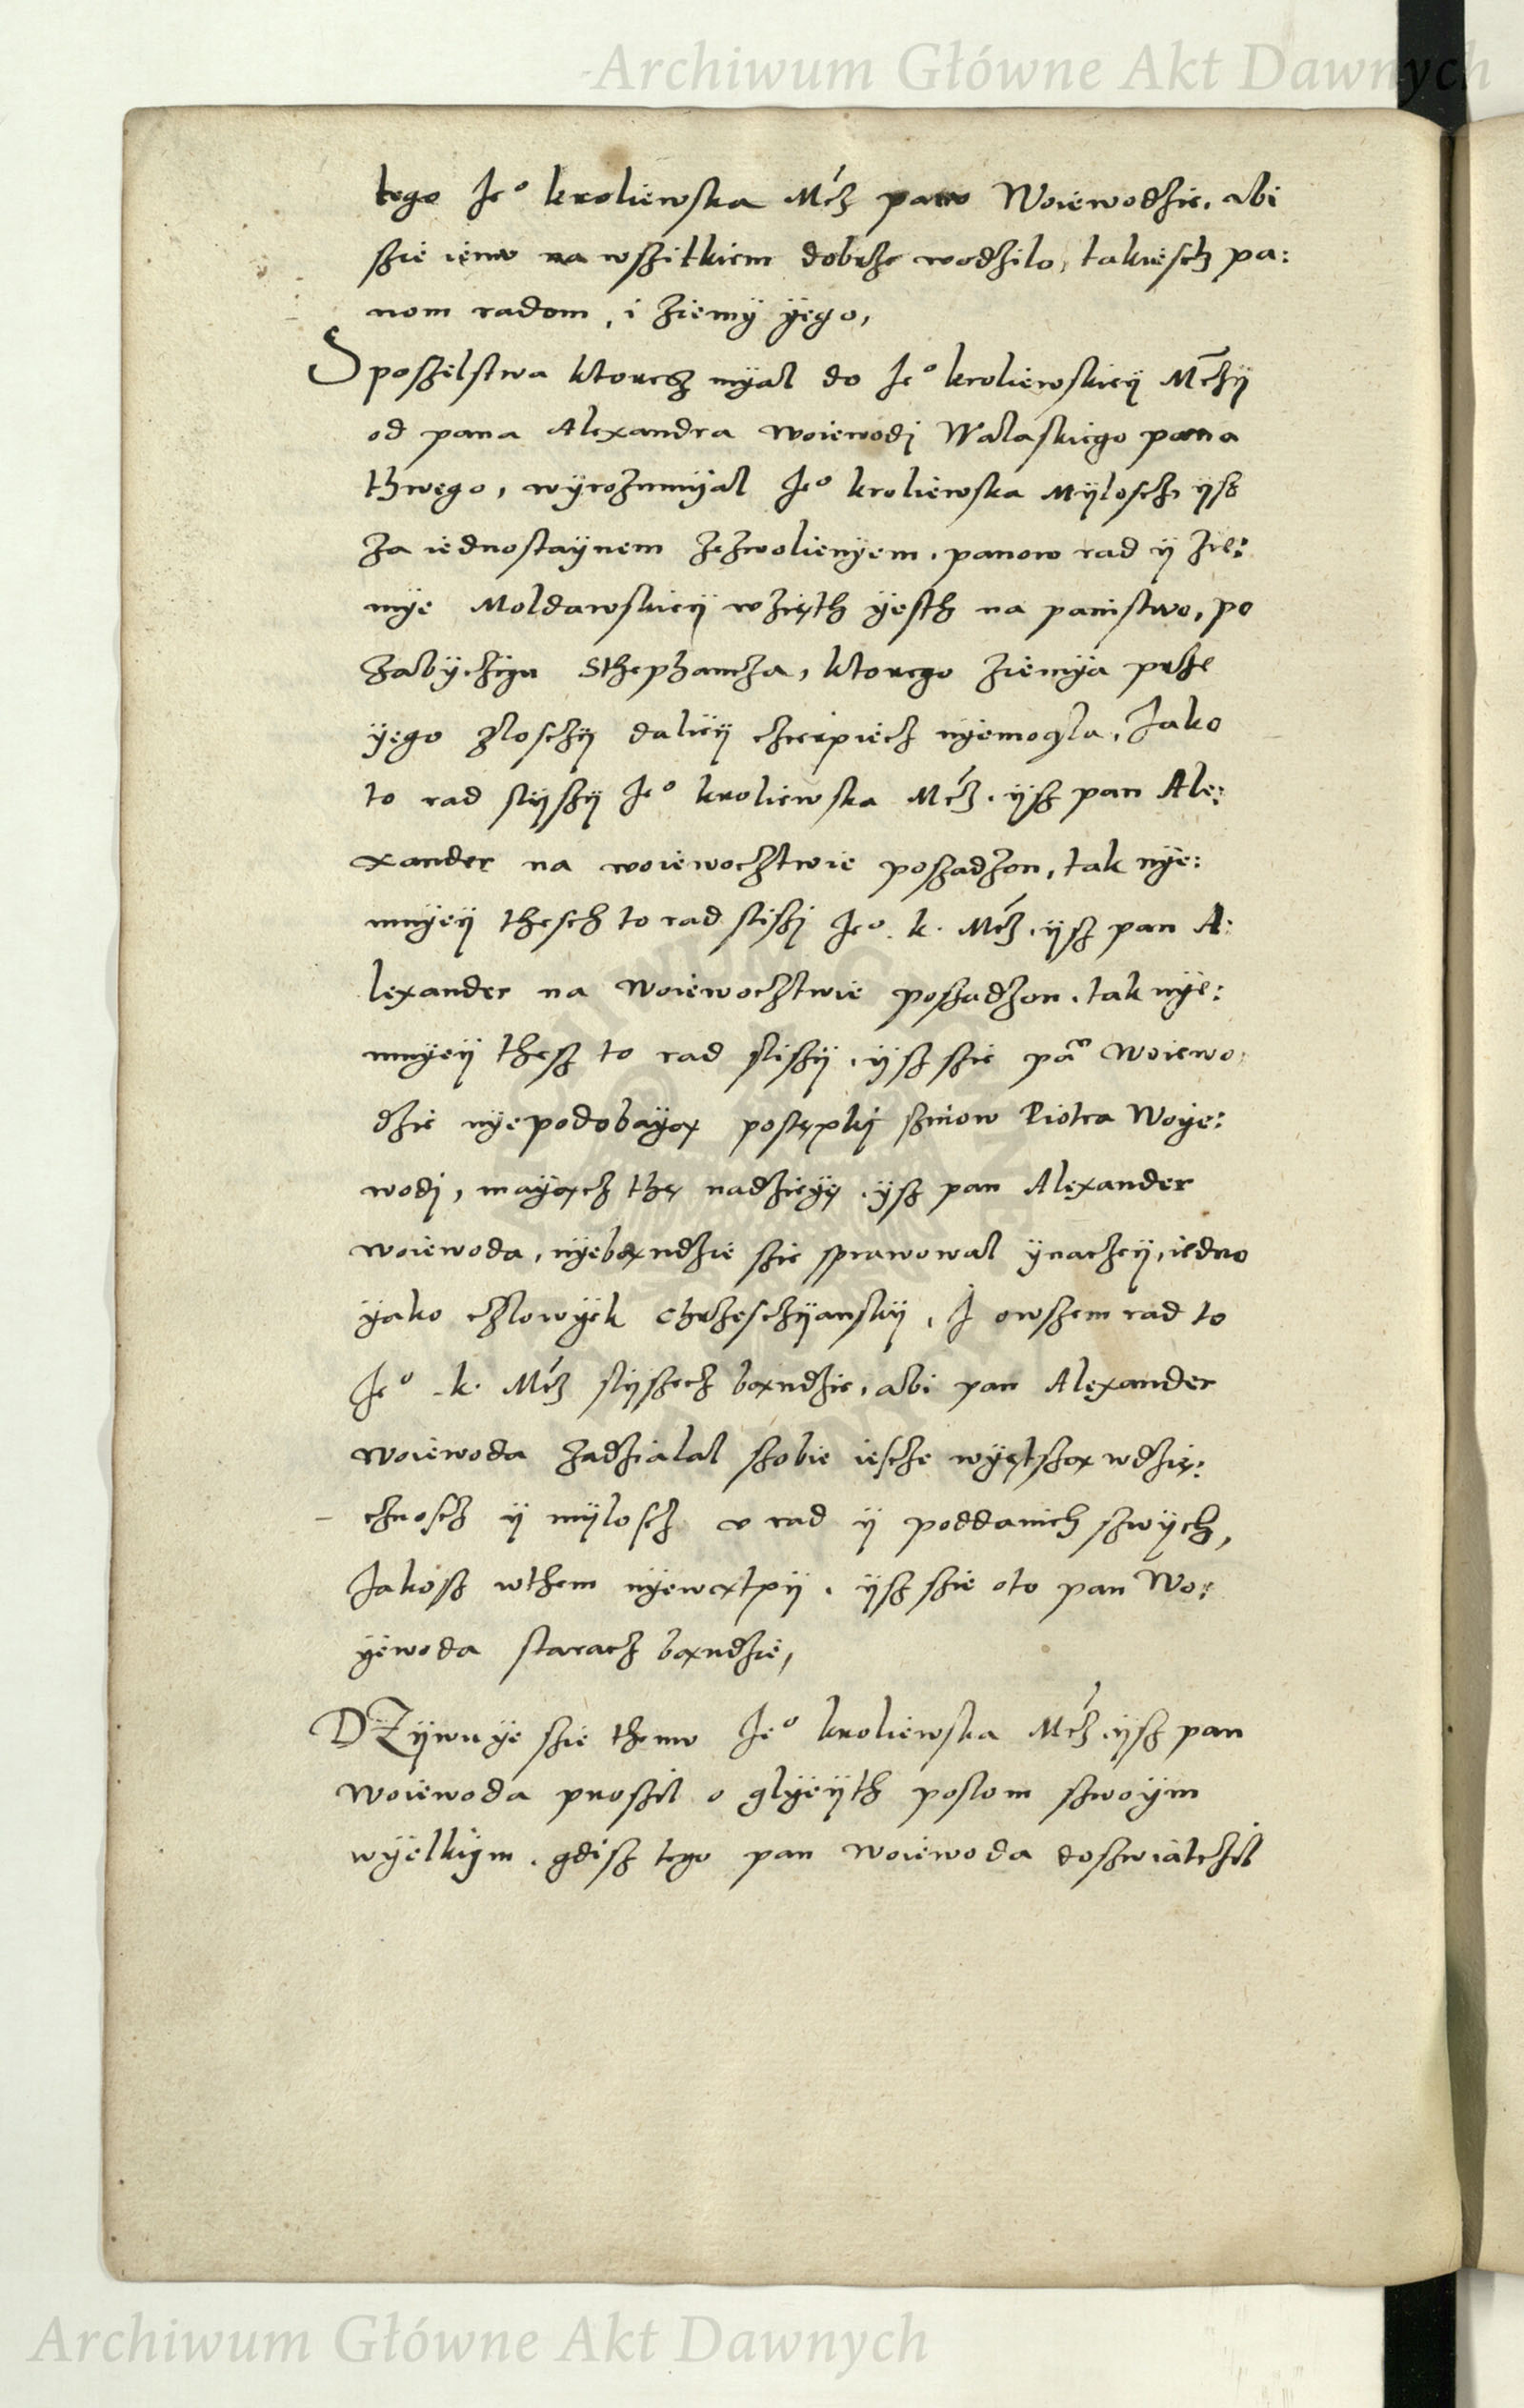 Archiwum Główne Akt Dawnych
tego Jeº kroliewska Mćz panu Woiewodzie, abi
szie iemu na wszitkiem dobrze wodzilo, takiesch pa:
nom radom, i ziemÿ ÿego,
S poszelstwa ktoresz mÿal do Jeº kroliewskieÿ Mczÿ
od pana Alexandra woiewodj Walaskiego pana
thwego, wÿrozumÿal Jeº kroliewska Mÿloscz ÿsz
za iednostaÿnem zezwolienÿem, panow rad ÿ zie:
mÿe Moldawskieÿ wzięth ÿesth na panistwo, po
zabyczÿu Sthephancza, ktorego ziemÿa prze
ÿego zlosczÿ dalieÿ czierpiecz nÿemogla, Jako
to rad slÿszÿ Jeº kroliewska Mćz. ÿsz pan Ale:
xander na woiewocztwie poszadzon, tak nÿe:
mnÿeÿ thesch to rad sliszj Jeº. k. Mćz. ÿsz pan A:
lexander na woiewocztwie poszadzon, tak nÿe:
mnÿeÿ thesz to rad sliszÿ, ÿsz szie pan woiewo:
dzie nÿepodobaÿą postępkÿ sznow Piotra Woÿe:
wodj, maÿącz thę nadzieÿę, ÿsz pan Alexander
woiewoda, nÿebąndzie szie sprawowal ÿnaczeÿ, iedno
ÿako człowÿek chrzesczÿanskÿ, J owszem rad to
Jeº k. Mćz slÿszecz bąndzie, abi pan Alexander
woiewoda zadzialal szobie iescze wÿętszą wdzię:
cznoscz ÿ mÿloscz v rad ÿ poddanich szwÿch,
Jakosz wthem nÿewątpÿ, ÿsz szie oto pan Wo:
ÿewoda staracz bąndzie,
DZÿwuÿe szie themu Jeº kroliewska Mćz. ÿsz pan
woiewoda proszil o glÿeÿth poslom szwoÿm
wÿelkÿm, gdisz tego pan woiewoda doszwiatczil
Archiwum Główne Akt Dawnych